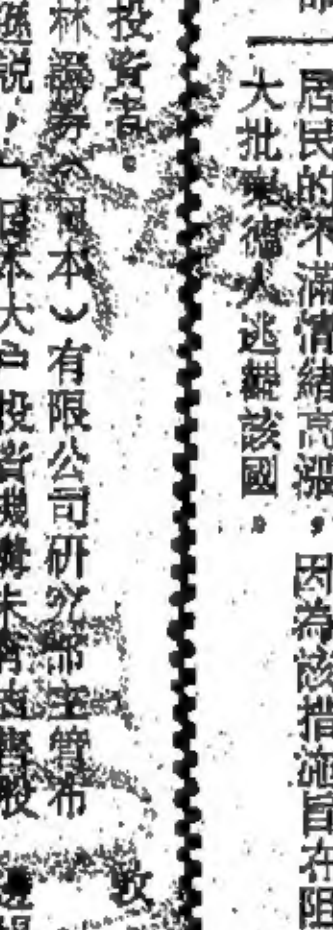 居民的不滿情緒高漲，因為該措施旨在阻
大批東德人逃離該國。
投資者。
林證券（日本）有限公司研究部主管布
孫說，「日本大戶投資機構未有